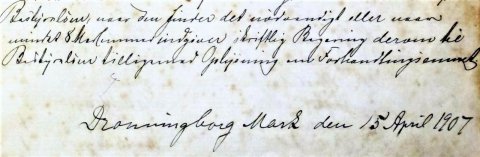 Bestyrelsen, naar den finder det nødvendigt eller naar
mindst 8 Medlemmer indgiver skriftlig Begæring derom til
Bestyrelsen tilligemed Oplysning om Forhandlingsemnet
Dronningborg Mark den 15 April 1907